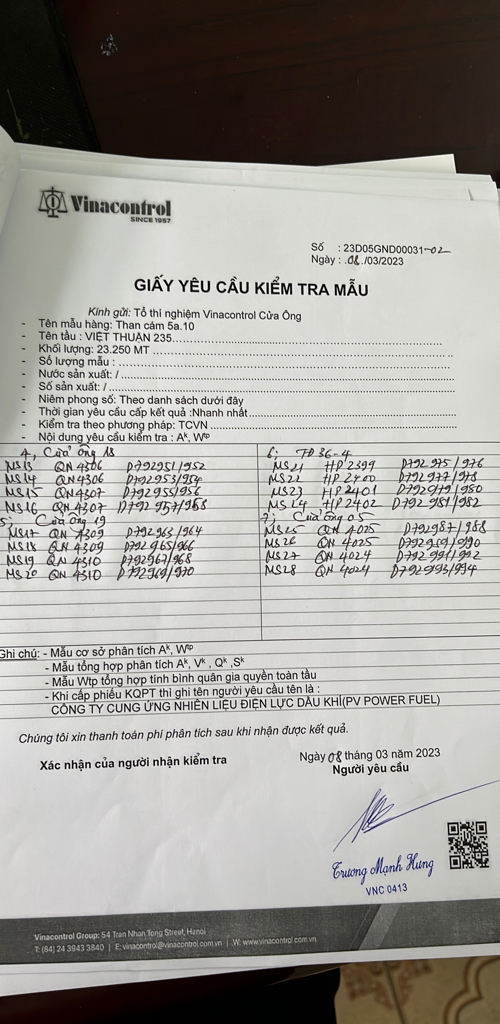 Vinacontrol
SINCE 1957
Số : 23D05GND00031-02
Ngày : .08./03/2023
GIẤY YÊU CẦU KIỂM TRA MẪU
Kính gửi: Tổ thí nghiệm Vinacontrol Cửa Ông
- Tên mẫu hàng: Than cám 5a.10
- Tên tàu : VIỆT THUẬN 235
- Khối lượng: 23.250 MT
- Số lượng mẫu :
- Nước sản xuất: /
- Số sản xuất: /
- Niêm phong số: Theo danh sách dưới đây
- Thời gian yêu cầu cấp kết quả :Nhanh nhất
- Kiểm tra theo phương pháp: TCVN
- Nội dung yêu cầu kiểm tra : Aᵏ, Wᵗᵖ
4, Cửa ông 18
MS13 QN 4306 D792951/952
MS14 QN4306 D792953/954
MS15 QN4307 D792955/956
MS16 QN4307 D792957/958
5; Cửa ông 19
MS17 QN 4309 D792963/964
MS18 QN 4309 D792965/966
MS19 QN 4310 D792967/968
MS20 QN4310 D792969/970
6; TD 36-4
MS21 HP 2399 D792975/976
MS22 HP 2400 D792977/978
MS23 HP 2401 D792979/980
MS24 HP 2402 D792981/982
7; Cửa ông 05
MS25 QN 4025 D792987/988
MS26 QN 4025 D792989/990
MS27 QN 4024 D792991/992
MS28 QN 4024 D792993/994
Ghi chú: - Mẫu cơ sở phân tích Aᵏ, Wᵗᵖ
- Mẫu tổng hợp phân tích Aᵏ, Vᵏ , Qᵏ ,Sᵏ
- Mẫu Wtp tổng hợp tính bình quân gia quyền toàn tàu
- Khi cấp phiếu KQPT thì ghi tên người yêu cầu tên là :
CÔNG TY CUNG ỨNG NHIÊN LIỆU ĐIỆN LỰC DẦU KHÍ(PV POWER FUEL)
Chúng tôi xin thanh toán phí phân tích sau khi nhận được kết quả.
Ngày 08 tháng 03 năm 2023
Xác nhận của người nhận kiểm tra
Người yêu cầu
Trương Mạnh Hưng
VNC 0413
Vinacontrol Group: 54 Tran Nhan Tong Street, Hanoi
T: (84) 24 3943 3840 | E: vinacontrol@vinacontrol.com.vn | W: www.vinacontrol.com.vn